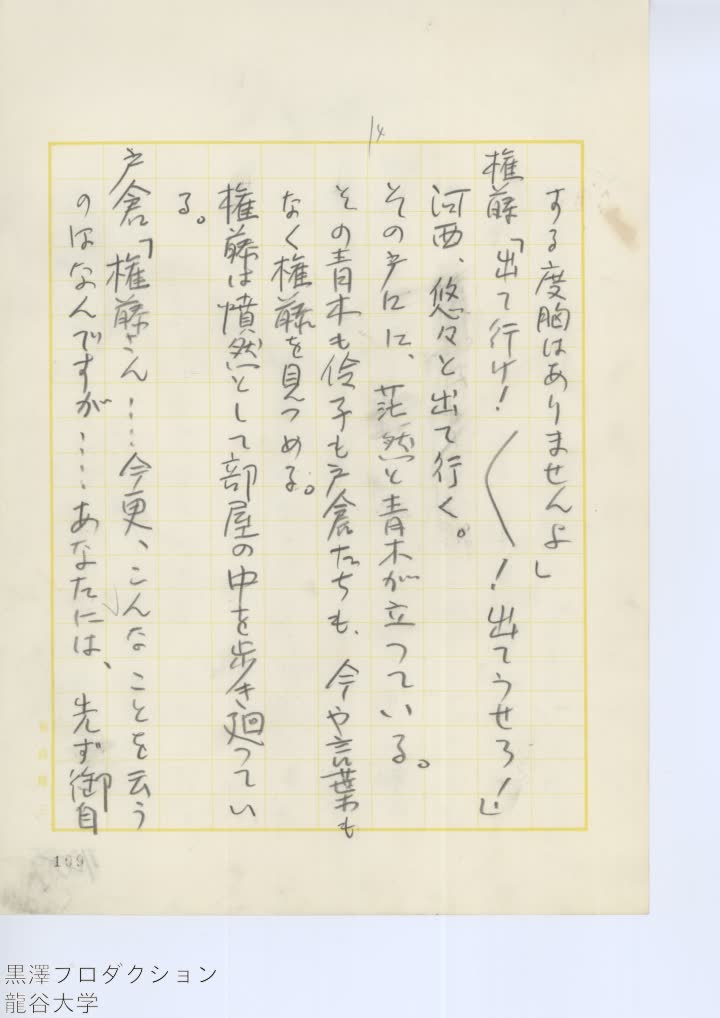 14
する度胸はありませんよ」
権藤「出て行け！〱！出てうせろ！」
河西、悠々と出て行く。
その戸口に、茫然と青木が立つている。
その青木も伶子も戸倉たちも、今や言葉も
なく権藤を見つめる。
権藤は憤然として部屋の中を歩き廻つてい
る。
戸倉「権藤さん……今更、こんなことを云う
のはなんですが……あなたには、先ず御自
199
黒澤プロダクション
龍谷大学